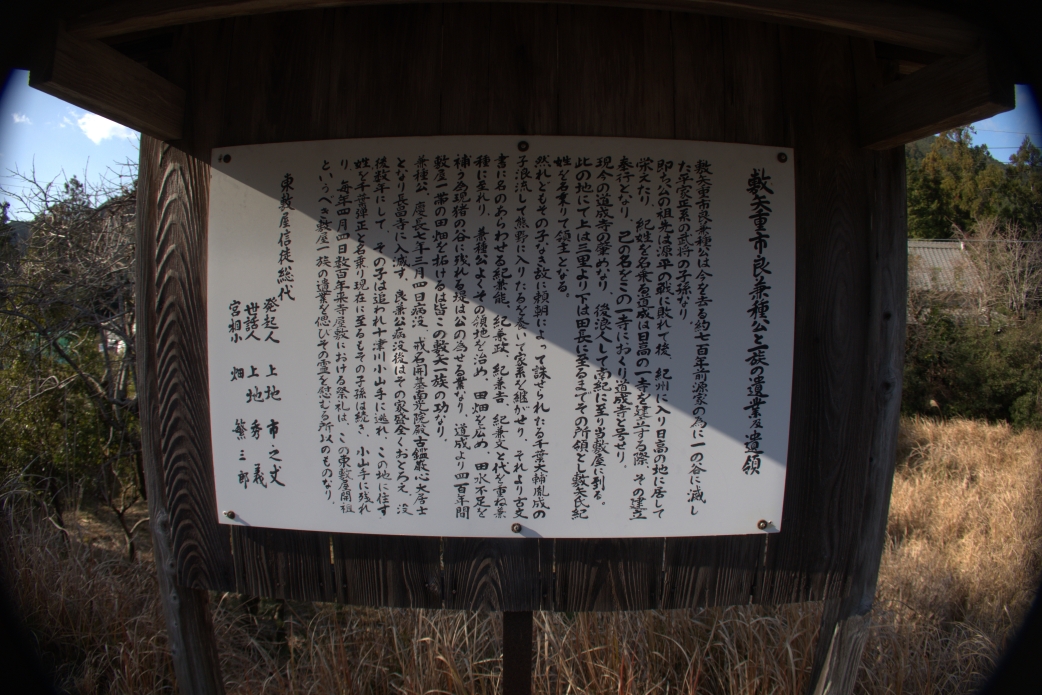 藪矢重市良兼種公と一族の遺業及遺領
藪矢重市良兼種公は今を去る約七百年前源家の為に一の谷に滅し
た平家正系の武将の子孫なり
即ち公の祖先は源平の戦に敗れて後、紀州に入り日高の地に居して
栄えたり、紀姓を名乗る道成は日高の一寺を建立する際、その建立
奉行となり、己の名をこの一寺におくり道成寺と号せり。
現今の道成寺の肇めなり、後浪人して南紀に至り当藪屋に到る。
此の地にて上は三里より下は田長に至るまでその所領とし藪矢氏紀
姓を名乗りて領主となる。
然れどもその子なき故に頼朝によって誅せられたる千葉大輔胤成の
子浪流して熊野に入りたるを養いて家系を継がせり、それより古文
書に名のあらわせる紀兼能、紀兼政、紀兼吉、紀兼文と代を重ね兼
種に至れり、兼種公よくその領地を治め、田畑を広め、田水不足を
補う為現猪の谷に残れる堤は公の為せる業なり、道成より四百年間
藪屋一帯の田畑を拓けるは皆この藪矢一族の功なり。
兼種公、慶長七年三月四日病没、戒名開基南光院殿古鑑厳心大居士
となり長昌寺に入滅す。良兼公病没後はその家盛全くおとろえ、没
後数年にして、その子は追われ十津川小山手に逃れ、この地に住す
姓を千葉弾正と名乗り現在に至るもその子孫は続き、小山手に残れ
り、毎年四月四日数百年来寺屋敷における祭礼は、この東藪屋開祖
というべき藪屋一族の遺業を偲びその霊を慰むる所以のものなり。
東藪屋信徒総代
発起人 上地 市之丈
世話人 上地 秀義
宮相小 畑 繁三郎